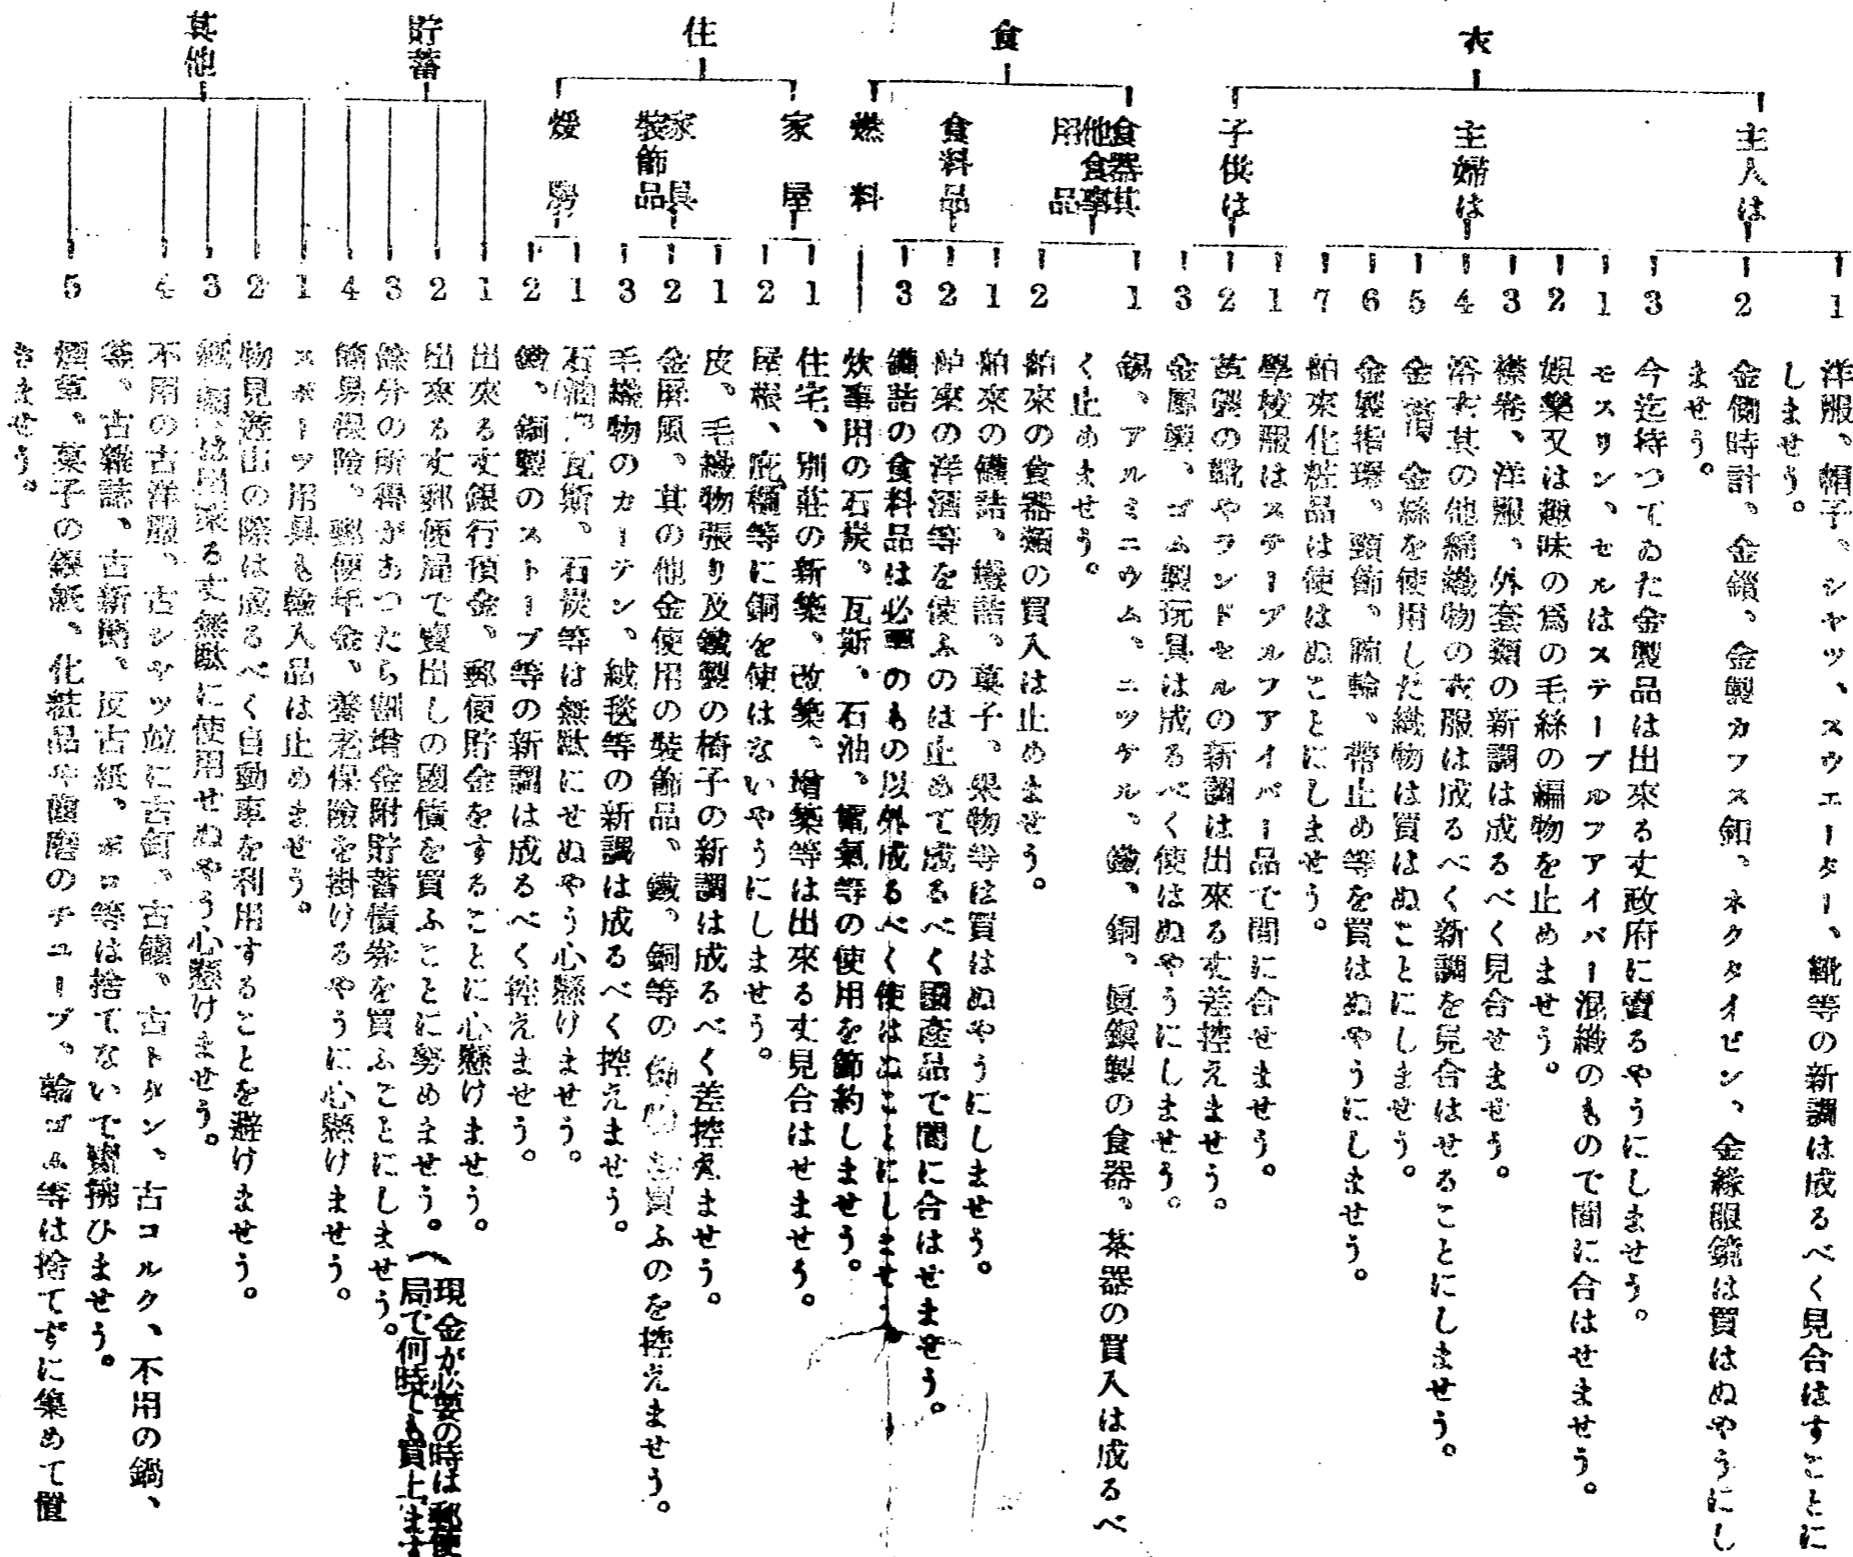 衣
主人は
1
洋服、帽子、シャツ、スウエーター、靴等の新調は成るべく見合はすことに
しませう。
2
金側時計、金鎖、金製カフス釦、ネクタイピン、金縁眼鏡は買はぬやうにし
ませう。
3
今迄持つてゐた金製品は出來る丈政府に賣るやうにしませう。
主婦は
1
モスリン、セルはステープルフアイバー混織のもので間に合はせませう。
2
娯樂又は趣味の爲の毛絲の編物を止めませう。
3
襟卷、洋服、外套類の新調は成るべく見合せませう。
4
浴衣其の他綿織物の衣服は成るべく新調を見合はせることにしませう。
5
金箔、金絲を使用した織物は買はぬことにしませう。
6
金製指環、頸飾、腕輪、帶止め等を買はぬやうにしませう。
7
舶來化粧品は使はぬことにしませう。
子供は
1
學校服はステープルフアイバー品で間に合せませう。
2
革製の靴やランドセルの新調は出來る丈差控えませう。
3
金屬製、ゴム製玩具は成るべく使はぬやうにしませう。
食
食器其
他食事
用品
1
錫、アルミニウム、ニツケル、鐵、銅、眞鍮製の食器、茶器の買入は成るべ
く止めませう。
2
舶來の食器類の買入は止めませう。
食料品
1
舶來の罐詰、壜詰、菓子、果物等は買はぬやうにしませう。
2
舶來の洋酒等を使ふのは止めて成るべく國產品で間に合はせませう。
3
罐詰の食料品は必要のもの以外成るべく使はぬことにしませう
燃料
炊事用の石炭、瓦斯、石油、電氣等の使用を節約しませう。
住
家屋
1
住宅、別莊の新築、改築、增築等は出來る丈見合はせませう。
2
屋根、庇、樋等に銅を使はないやうにしませう。
家具
裝飾品
1
皮、毛織物張り及鐵製の椅子の新調は成るべく差控えませう。
2
金屏風、其の他金使用の裝飾品、鐵、銅等の飾物を買ふのを控えませう。
3
毛織物のカーテン、絨毯等の新調は成るべく控えませう。
煖房
1
石油、瓦斯、石炭等は無駄にせぬやう心懸けませう。
2
鐵、銅製のストーブ等の新調は成るべく控えませう。
貯蓄
1
出來る丈銀行預金、郵便貯金をすることに心懸けませう。
2
出來る丈郵便局で賣出しの國債を買ふことに努めませう。(現金が必要の時は郵便
局で何時でも買上ます
3
餘分の所得があつたら割增金附貯蓄債券を買ふことにしませう。
4
簡易保險、郵便年金、養老保險を掛けるやうに心懸けませう。
其他
1
スポーツ用具も輸入品は止めませう。
2
物見遊山の際は成るべく自動車を利用することを避けませう。
3
紙類は出來る丈無駄に使用せぬやう心懸けませう。
4
不用の古洋服、古シヤツ竝に古釘、古鐵、古トタン、古コルク、不用の鍋、
釜、古雜誌、古新聞、反古紙、ボロ等は捨てないで賣拂ひませう。
5
煙草、菓子の銀紙、化粧品や齒磨のチユーブ、輪ゴム等は捨てずに集めて置
きませう。